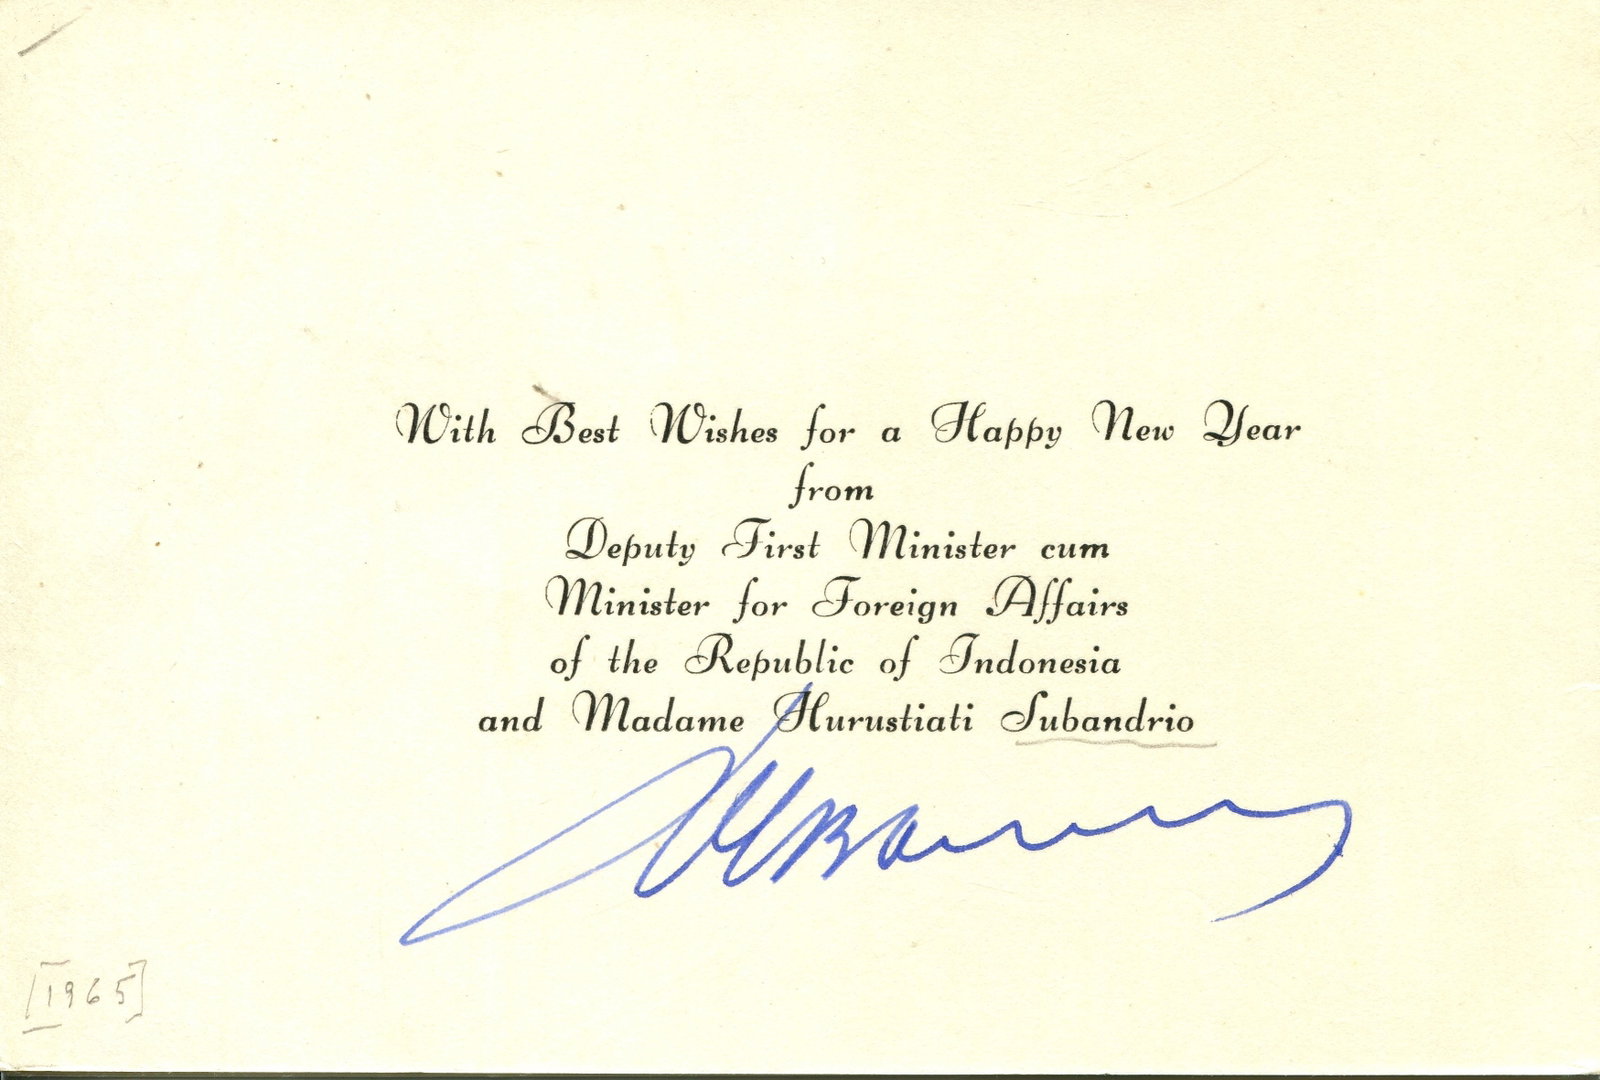 With Best Wishes for a Happy New Year
from
Deputy First Minister cum
Minister for Foreign Affairs
of the Republic of Indonesia
and Madame Hurustiati Subandrio
[1965]